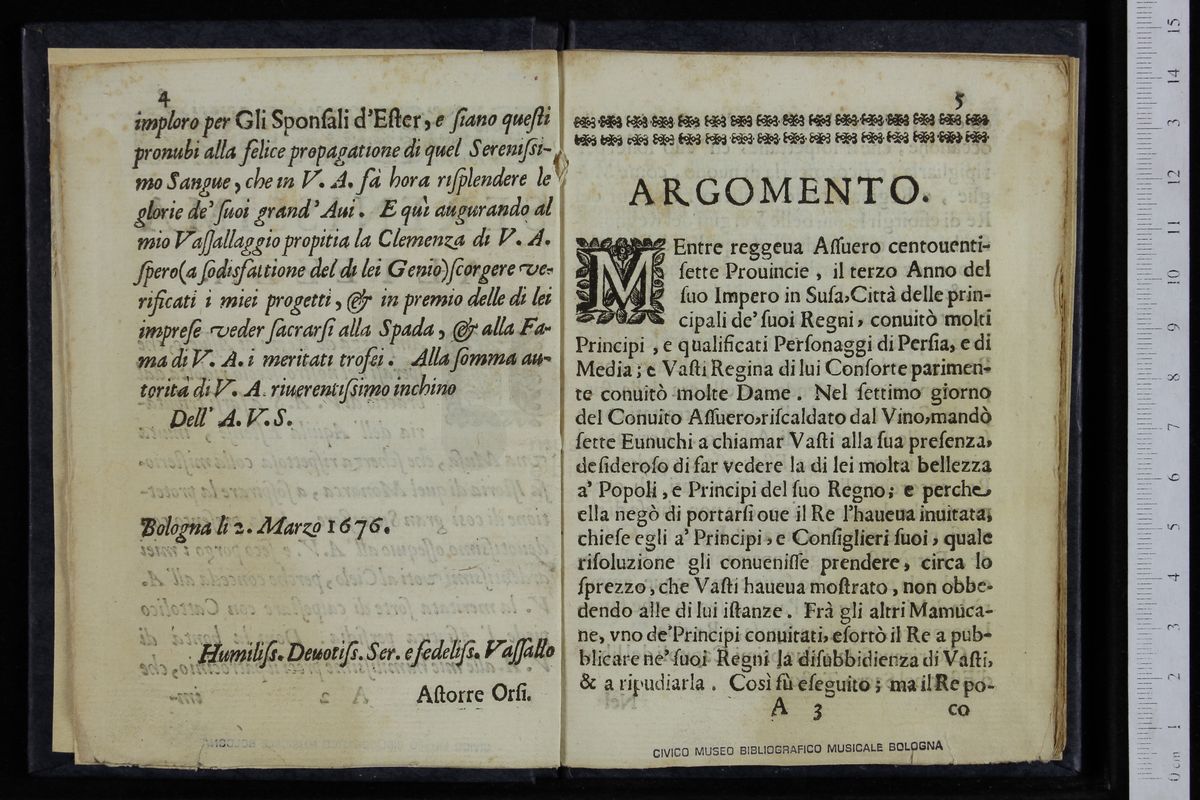 4
imploro per Gli Sponſali d'Eſter, e ſiano queſti
pronubi alla felice propagatione di quel Sereniſsi-
mo Sangue, che in V. A. fà hora riſplendere le
glorie de' ſuoi grand' Aui. E quì augurando al
mio Vaſſallaggio propitia la Clemenza di V. A.
ſpero (a ſodisfattione del di lei Genio) ſcorgere ve-
rificati i miei progetti, & in premio delle di lei
impreſe veder ſacrarſi alla Spada, & alla Fa-
ma di V. A. i meritati trofei. Alla ſomma au-
torità di V. A. riuerentiſſimo inchino
Dell' A. V. S.
Bologna li 2. Marzo 1676.
Humiliſs. Deuotiſs. Ser. e fedeliſs. Vaſſallo
Aſtorre Orſi.
5
ARGOMENTO.
MEntre reggeua Aſſuero centouenti-
ſette Prouincie, il terzo Anno del
ſuo Impero in Suſa, Città delle prin-
cipali de' ſuoi Regni, conuitò molti
Principi, e qualificati Perſonaggi di Perſia, e di
Media; e Vaſti Regina di lui Conſorte parimen-
te conuitò molte Dame. Nel ſettimo giorno
del Conuito Aſſuero, riſcaldato dal Vino, mandò
ſette Eunuchi a chiamar Vaſti alla ſua preſenza,
deſideroſo di far vedere la di lei molta bellezza
a' Popoli, e Principi del ſuo Regno; e perche
ella negò di portarſi oue il Re l'haueua inuitata,
chieſe egli a' Principi, e Conſiglieri ſuoi, quale
riſoluzione gli conueniſſe prendere, circa lo
ſprezzo, che Vaſti haueua moſtrato, non obbe-
dendo alle di lui iſtanze. Frà gli altri Mamuca-
ne, vno de' Principi conuitati, eſortò il Re a pub-
blicare ne' ſuoi Regni la diſubbidienza di Vaſti,
& a ripudiarla. Così fù eſeguito; ma il Re po-
A 3 co
CIVICO MUSEO BIBLIOGRAFICO MUSICALE BOLOGNA
15
14
13
12
11
10
9
8
7
6
5
4
3
2
1
0 cm